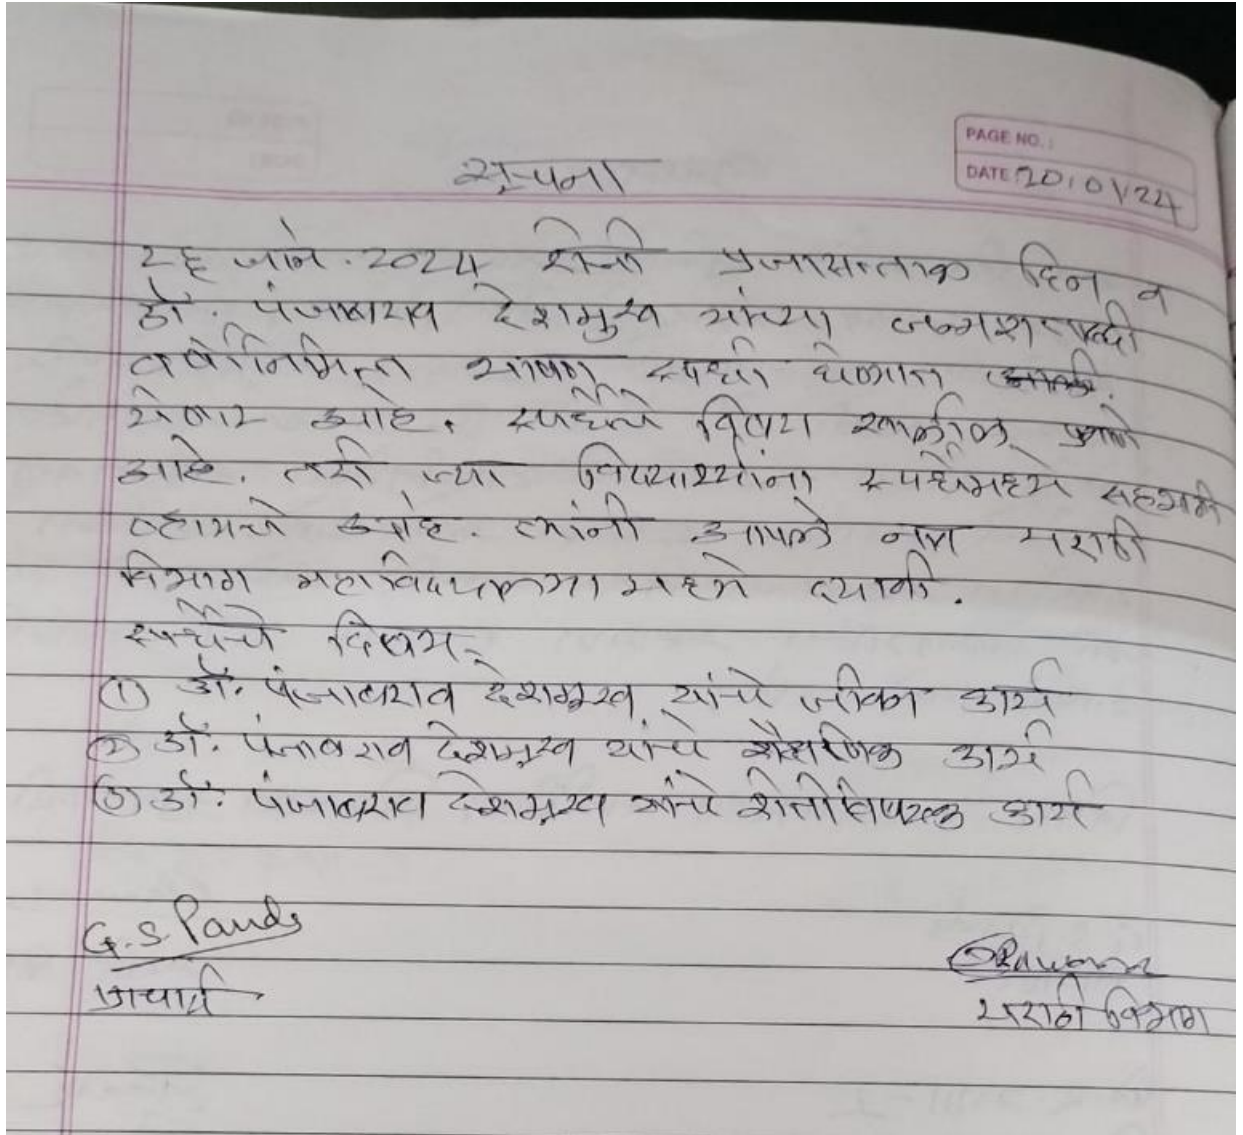 PAGE NO.:
DATE: 20/01/24
सूचना
२६ जाने. 2024 रोजी प्रजासत्ताक दिन व
डॉ. पंजाबराव देशमुख यांच्या जन्मशताब्दी
वर्षानिमित्त भाषण स्पर्धा घेण्यात
येणार आहे. स्पर्धेचे विषय खालील प्रमाणे
आहे. तरी ज्या विद्यार्थ्यांना स्पर्धेमध्ये सहभागी
व्हायचे आहे. त्यांनी आपले नाव मराठी
विभाग महाविद्यालया मध्ये द्यावी.
स्पर्धेचे विषय:-
① डॉ. पंजाबराव देशमुख यांचे जीवन कार्य
② डॉ. पंजाबराव देशमुख यांचे शैक्षणिक कार्य
③ डॉ. पंजाबराव देशमुख यांचे शेतीविषयक कार्य
G.S.
प्राचार्य
मराठी विभाग